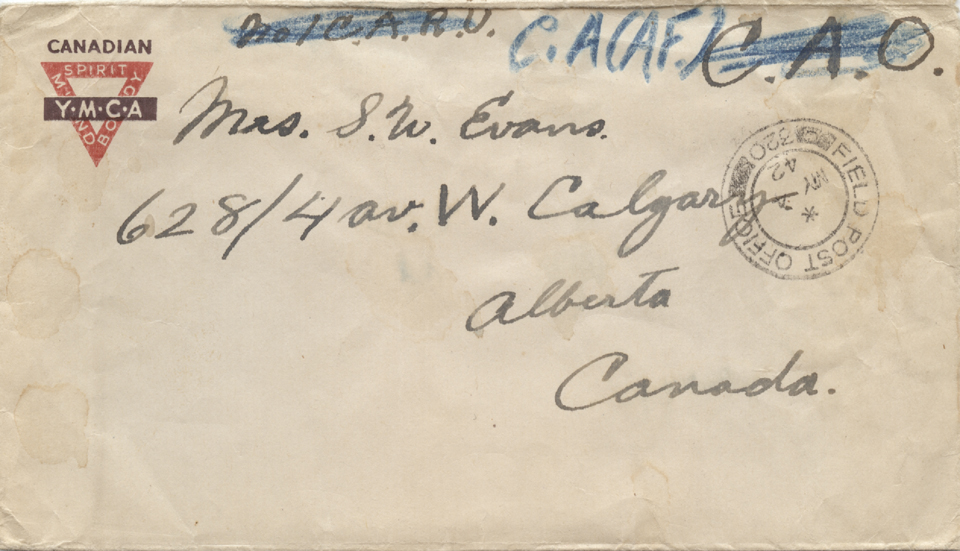 No 1 C.A.R.U. C.A(A.F.) C.A.O.
CANADIAN
SPIRIT
MIND
BODY
Y·M·C·A
Mrs. S.W. Evans.
628/4 av. W. Calgary
Alberta
Canada.
FIELD POST OFFICE 320
* 4
42